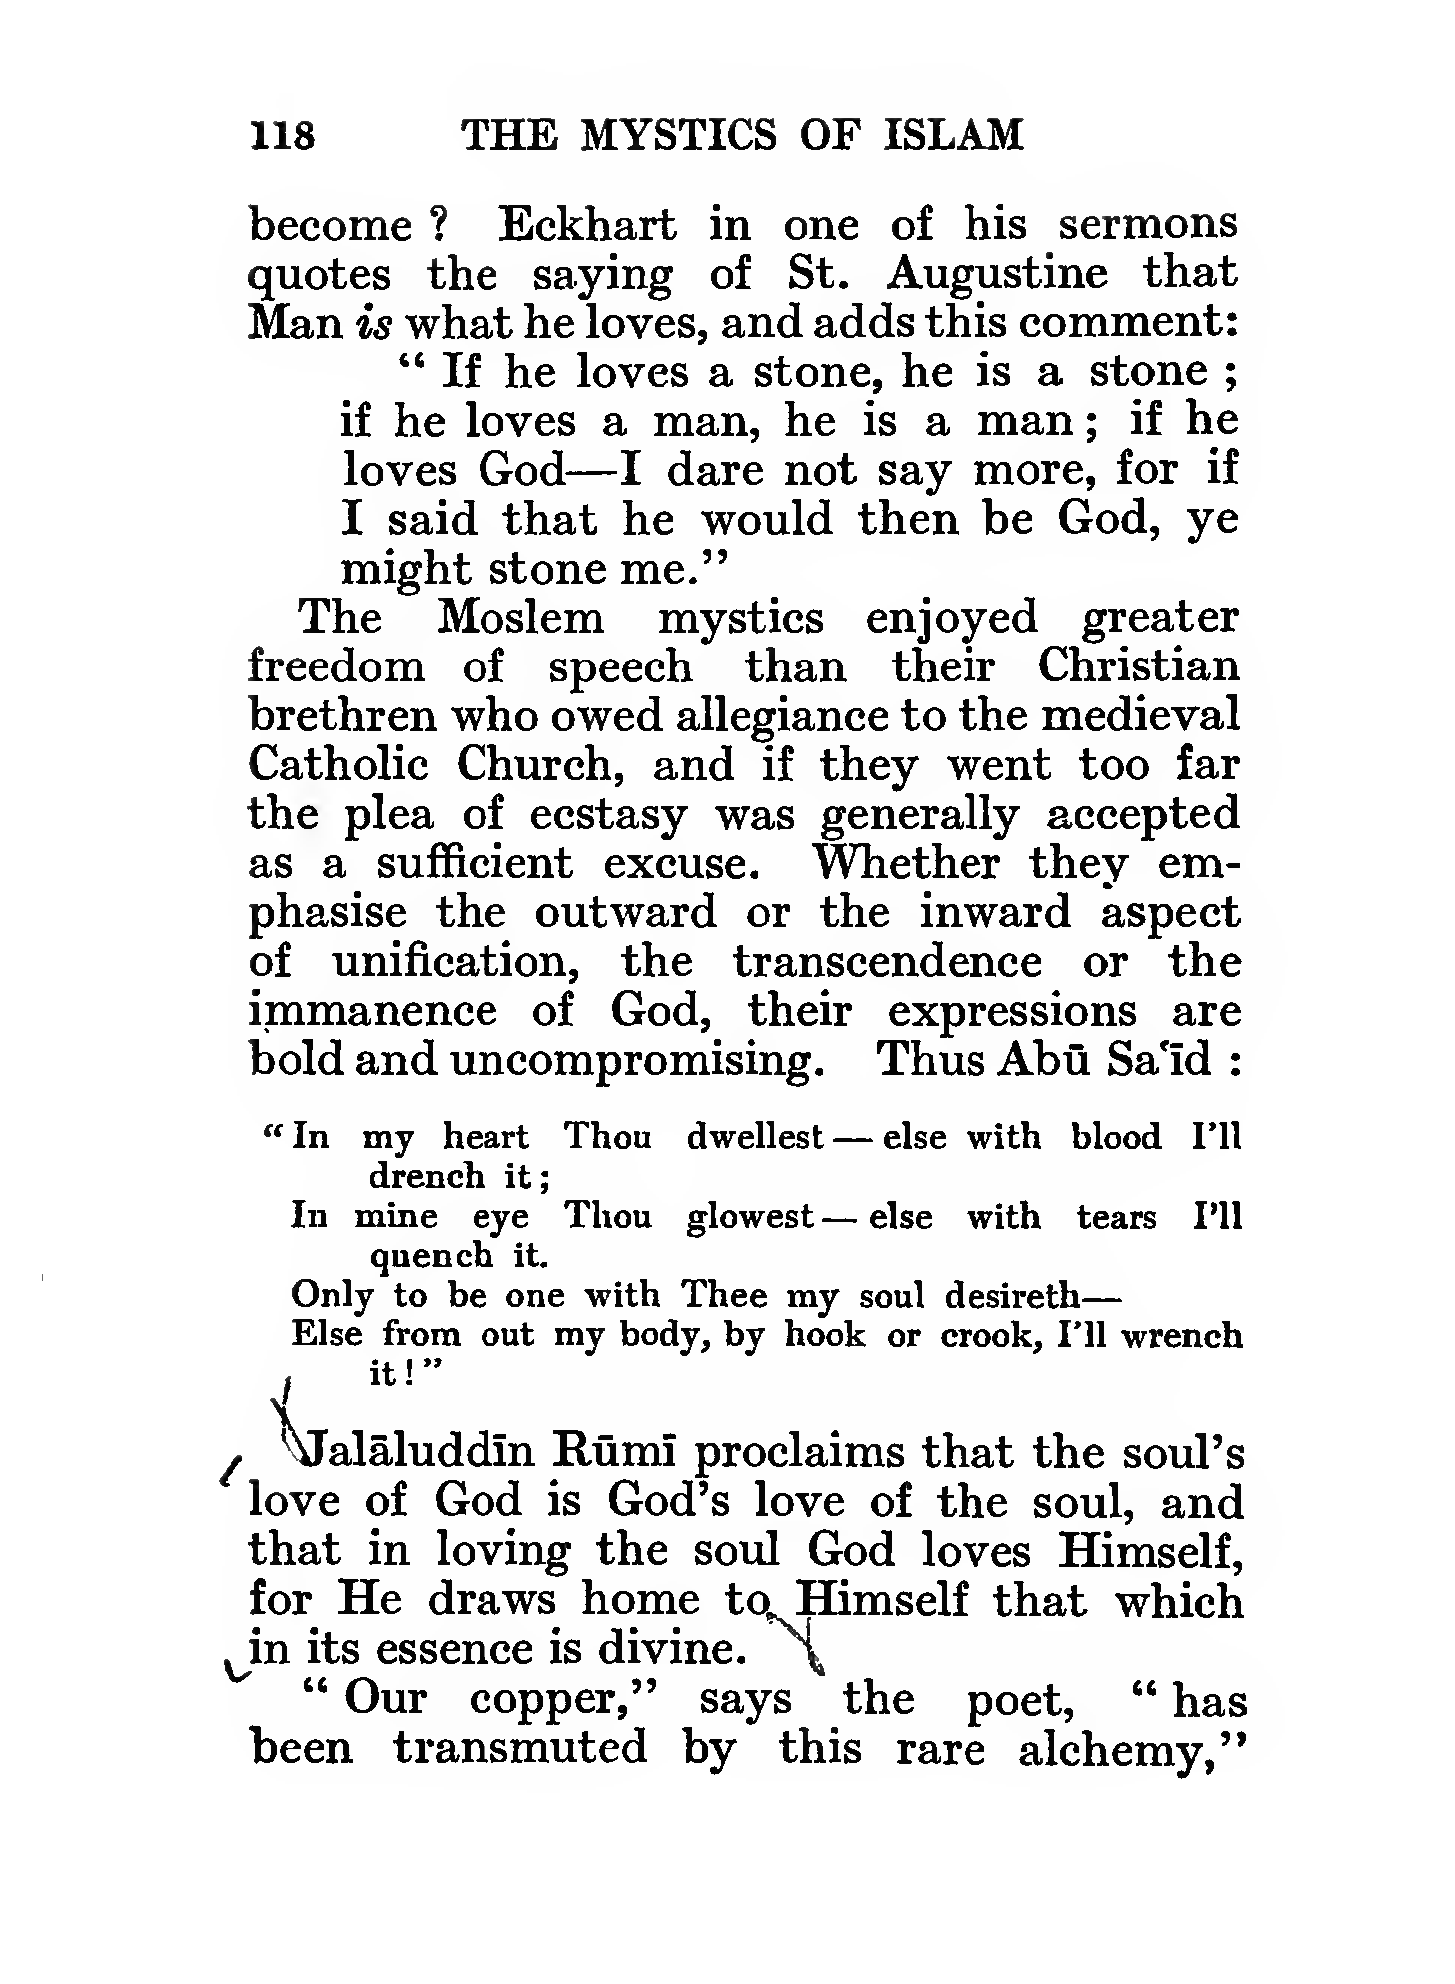 118 THE MYSTICS OF ISLAM
become ? Eckhart in one of his sermons
quotes the saying of St. Augustine that
Man is what he loves, and adds this comment:
“ If he loves a stone, he is a stone ;
if he loves a man, he is a man ; if he
loves God—I dare not say more, for if
I said that he would then be God, ye
might stone me.”
The Moslem mystics enjoyed greater
freedom of speech than their Christian
brethren who owed allegiance to the medieval
Catholic Church, and if they went too far
the plea of ecstasy was generally accepted
as a sufficient excuse. Whether they em-
phasise the outward or the inward aspect
of unification, the transcendence or the
immanence of God, their expressions are
bold and uncompromising. Thus Abū Saʿīd :
“ In my heart Thou dwellest — else with blood I’ll
drench it ;
In mine eye Thou glowest — else with tears I’ll
quench it.
Only to be one with Thee my soul desireth—
Else from out my body, by hook or crook, I’ll wrench
it ! ”
Jalāluddīn Rūmī proclaims that the soul’s
love of God is God’s love of the soul, and
that in loving the soul God loves Himself,
for He draws home to Himself that which
in its essence is divine.
“ Our copper,” says the poet, “ has
been transmuted by this rare alchemy,”